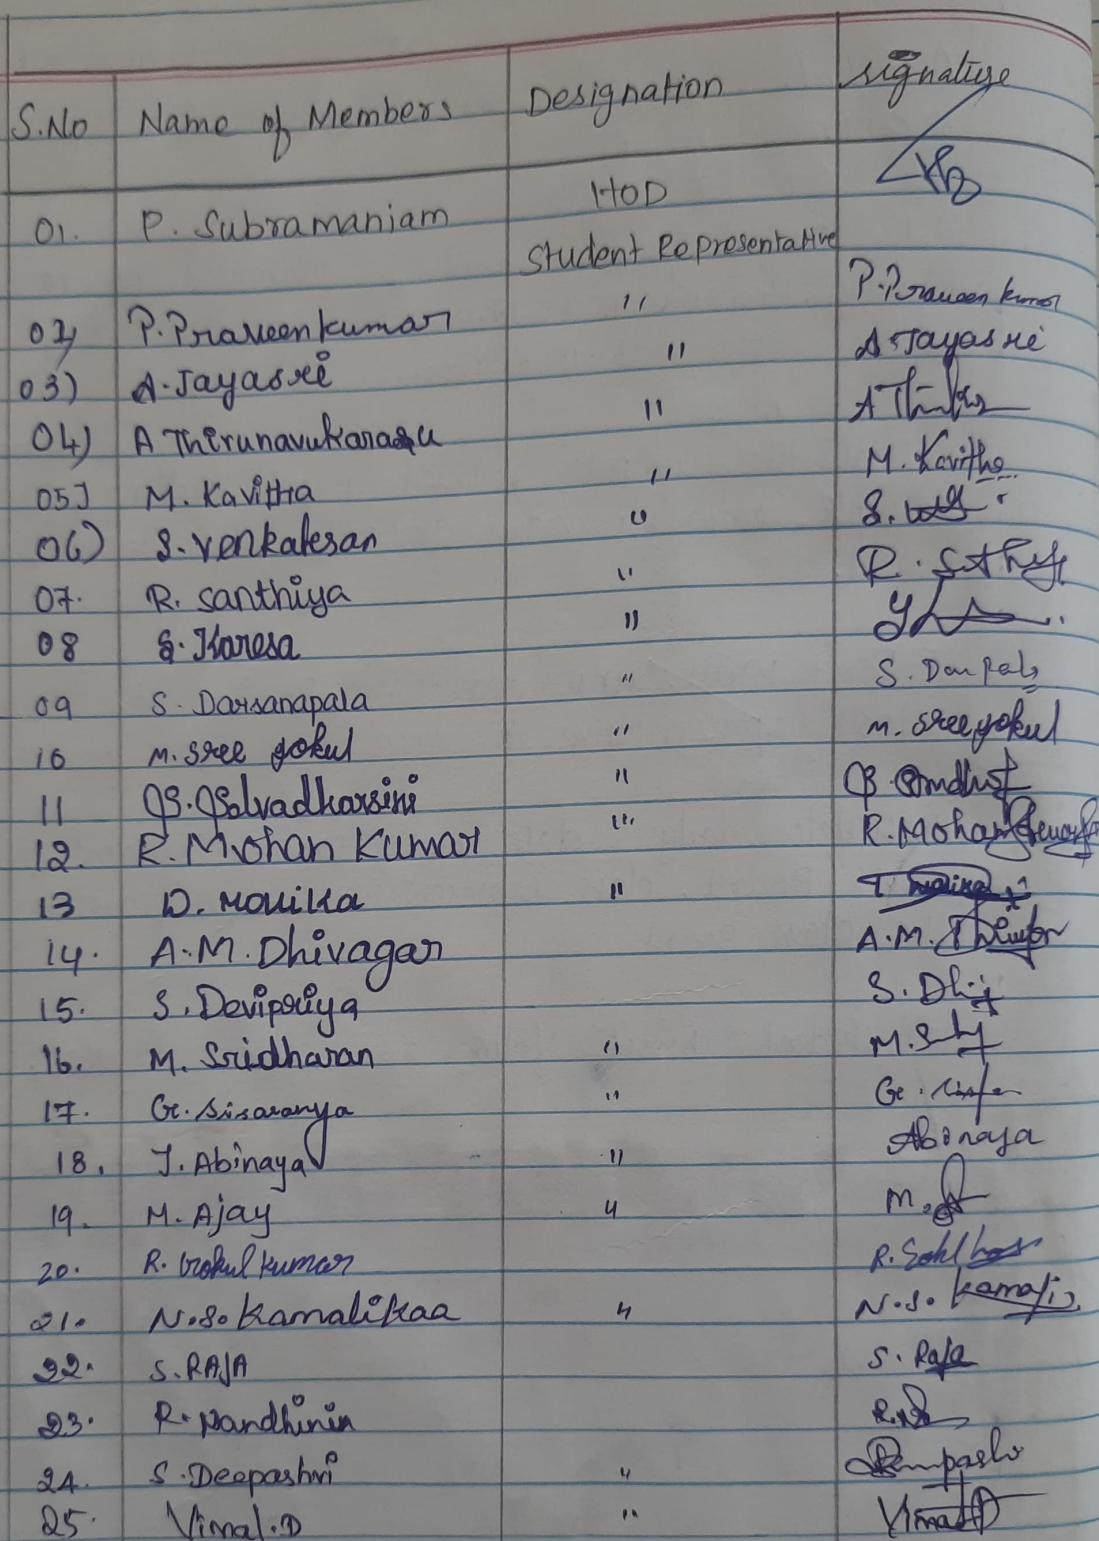 S.No Name of Members Designation Signature
HOD
01. P. Subramaniam
Student Representative
02) P. Praveen kumar " P. Praveen kumar
03) A. Jayasree " A. Jayasree
04) A Thirunavukarasu " A
05) M. Kavitha " M. Kavitha
06) S. Venkatesan " S.
07. R. Santhiya " R.
08 S. Karesa "
09 S. Darsanapala " S.
10 M. Sree gokul " M. Sree gokul
11 S. Selvadharsini "
12. R. Mohan Kumar " R. Mohan
13 D. Mouika "
14. A.M. Dhivagar A.M.
15. S. Devipriya S.
16. M. Sridharan " M.
17. G. Sisaranya " G.
18. J. Abinaya " Abinaya
19. M. Ajay " M.
20. R. Gokul kumar R.
21. N.S. Kamalikaa " N.S.
22. S. RAJA S. Raja
23. R. R.
24. S. Deepashri "
25. Vimal.D " Vimal D